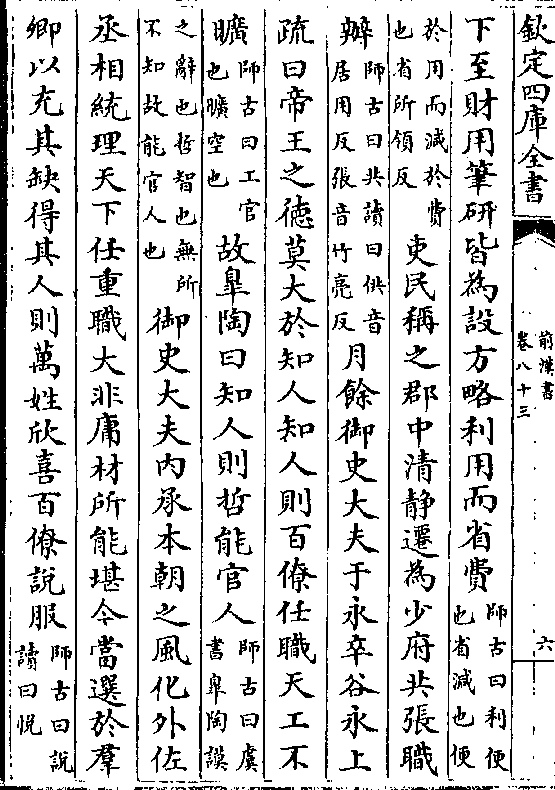 欽定四庫全書
前漢書
卷八十三
六
下至財用筆硏皆為設方略利用而省費師古曰利便也省減也便
於用而減於費也省所領反吏民稱之郡中清静遷為少府共張職
辦師古曰共讀曰供音居用反張音竹亮反月餘御史大夫于永卒谷永上
疏曰帝王之徳莫大於知人知人則百僚任職天工不
曠師古曰工官也曠空也故臯陶曰知人則哲能官人師古曰虞書臯陶謨
之辭也哲智也無所不知故能官人也御史大夫内承本朝之風化外佐
丞相統理天下任重職大非庸材所能堪今當選於羣
卿以充其缺得其人則萬姓欣喜百僚說服師古曰說讀曰悦